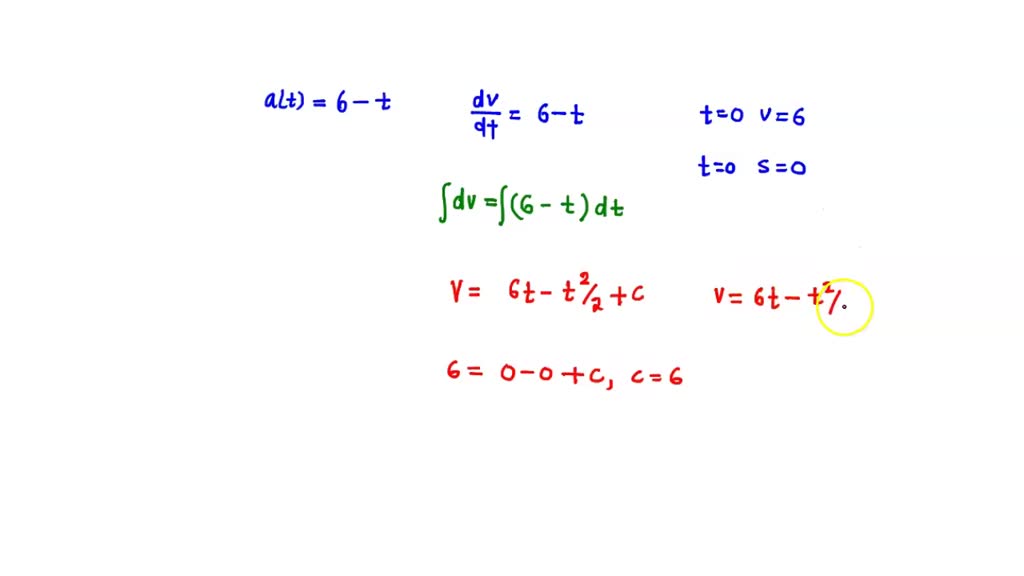 a(t) = 6 - t
dv/dt = 6 - t
t=0 v=6
t=0 s=0
∫dv = ∫(6 - t) dt
V = 6t - t²/2 + c
v = 6t - t²/
6 = 0 - 0 + c, c = 6